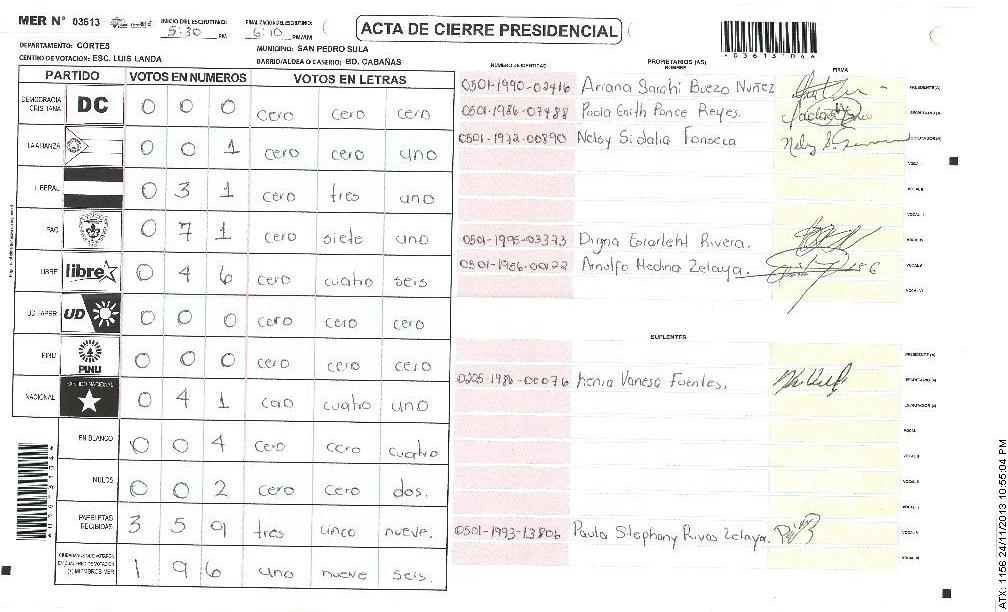 MER N° 03613
INICIO DEL ESCRUTINIO: 5:30 PM
FINALIZACIÓN DEL ESCRUTINIO: 6:10 PM/AM
ACTA DE CIERRE PRESIDENCIAL
*03613104*
DEPARTAMENTO: CORTES
MUNICIPIO: SAN PEDRO SULA
CENTRO DE VOTACION: ESC. LUIS LANDA
BARRIO/ALDEA O CASERIO: BO. CABAÑAS
PARTIDO VOTOS EN NUMEROS VOTOS EN LETRAS
DEMOCRACIA CRISTIANA DC 0 0 0 cero cero cero
LA ALIANZA 0 0 1 cero cero uno
LIBERAL 0 3 1 cero tres uno
PAC 0 7 1 cero siete uno
LIBRE libre 0 4 6 cero cuatro seis
UD FAPER UD 0 0 0 cero cero cero
PINU PINU 0 0 0 cero cero cero
NACIONAL PARTIDO NACIONAL 0 4 1 cero cuatro uno
EN BLANCO 0 0 4 cero cero cuatro
NULOS 0 0 2 cero cero dos.
PAPELETAS RECIBIDAS 3 5 9 tres cinco nueve.
CIUDADANOS QUE VOTARON 1 9 6 uno nueve seis.
NUMERO DE IDENTIDAD
PROPIETARIOS (AS)
NOMBRE
FIRMA
0501-1990-02416 Ariana Sarahi Buezo Nuñez PRESIDENTE (A)
0501-1986-07488 Paola Enith Ponce Reyes. SECRETARIO (A)
0501-1972-00890 Nelsy Sidalia Fonseca ESCRUTADOR (A)
VOCAL I
VOCAL II
VOCAL III
0501-1995-03373 Digna Escarleht Rivera. VOCAL IV
0501-1956-00122 Arnolfo Medina Zelaya. VOCAL V
VOCAL VI
SUPLENTES
PRESIDENTE (A)
0205-1986-00076 Kenia Vanesa Fuentes. SECRETARIO (A)
ESCRUTADOR (A)
VOCAL I
VOCAL II
VOCAL III
VOCAL IV
0501-1993-13806 Paula Stephany Rivas Zelaya. VOCAL V
VOCAL VI
ATX: 1156 24/11/2013 10:55:04 PM